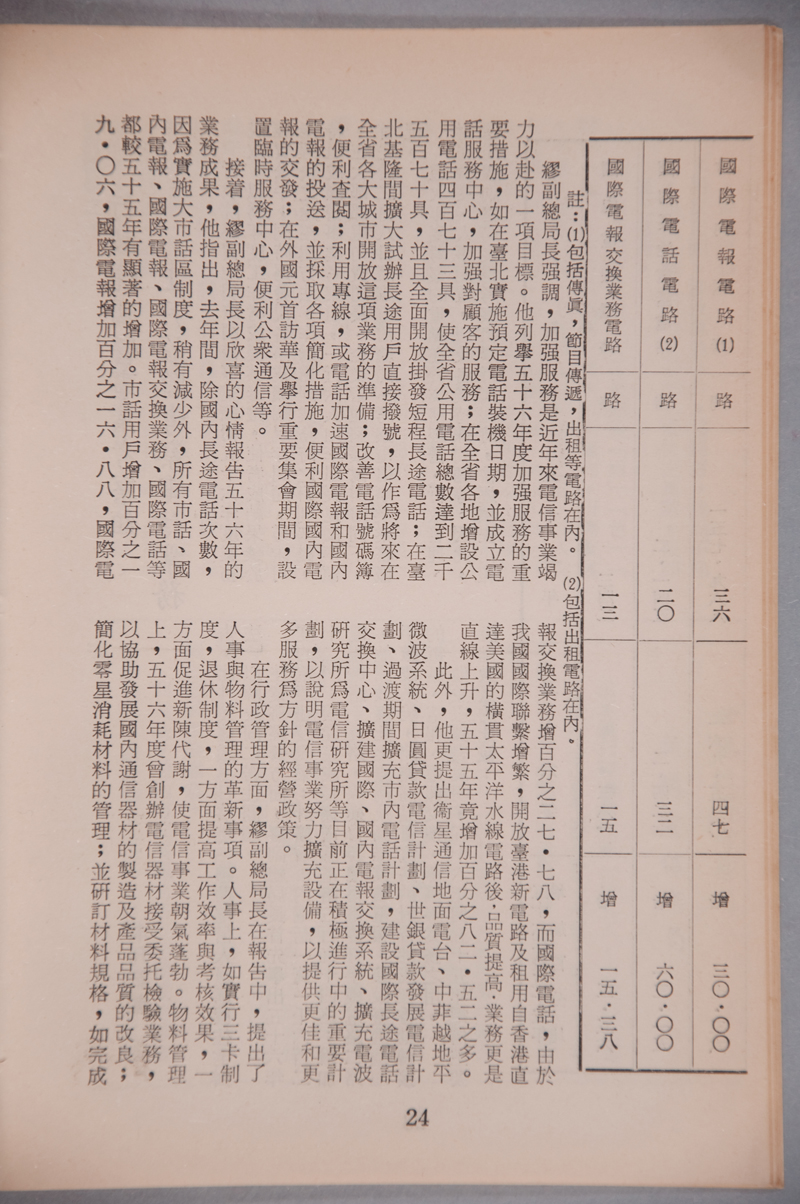 國際電報電路(1) 路 三六 四七 增 三〇・〇〇
國際電話電路(2) 路 二〇 三二 增 六〇・〇〇
國際電報交換業務電路 路 一三 一五 增 一五・三八
註：(1)包括傳眞，節目傳遞，出租等電路在內。 (2)包括出租電路在內。
繆副總局長强調，加强服務是近年來電信事業竭
力以赴的一項目標。他列擧五十六年度加强服務的重
要措施，如在臺北實施預定電話裝機日期，並成立電
話服務中心，加强對顧客的服務；在全省各地增設公
用電話四百七十三具，使全省公用電話總數達到二千
五百七十具，並且全面開放掛發短程長途電話；在臺
北基隆間擴大試辦長途用戶直接撥號，以作爲將來在
全省各大城市開放這項業務的準備；改善電話號碼簿
，便利查閱；利用專線，或電話加速國際電報和國內
電報的投送，並採取各項簡化措施，便利國際國內電
報的交發；在外國元首訪華及舉行重要集會期間，設
置臨時服務中心，便利公衆通信等。
接着，繆副總局長以欣喜的心情報告五十六年的
業務成果，他指出，去年間，除國內長途電話次數，
因爲實施大市話區制度，稍有減少外，所有市話、國
內電報、國際電報、國際電報交換業務、國際電話等
都較五十五年有顯著的增加。市話用戶增加百分之一
九・〇六，國際電報增加百分之一六・八八，國際電
報交換業務增百分之二七・七八，而國際電話，由於
我國國際聯繫增繁，開放臺港新電路及租用自香港直
達美國的橫貫太平洋水線電路後・品質提高・業務更是
直線上升，五十五年竟增加百分之八二・五二之多。
此外，他更提出衞星通信地面電台、中菲越地平
微波系統、日圓貸款電信計劃、世銀貸款發展電信計
劃、過渡期間擴充市內電話計劃，建設國際長途電話
交換中心、擴建國際、國內電報交換系統、擴充電波
硏究所爲電信硏究所等目前正在積極進行中的重要計
劃，以說明電信事業努力擴充設備，以提供更佳和更
多服務爲方針的經營政策。
在行政管理方面，繆副總局長在報告中，提出了
人事與物料管理的革新事項。人事上，如實行三卡制
度，退休制度，一方面提高工作效率與考核效果，一
方面促進新陳代謝，使電信事業朝氣蓬勃。物料管理
上，五十六年度曾創辦電信器材接受委托檢驗業務，
以協助發展國內通信器材的製造及產品品質的改良；
簡化零星消耗材料的管理；並硏訂材料規格，如完成
24